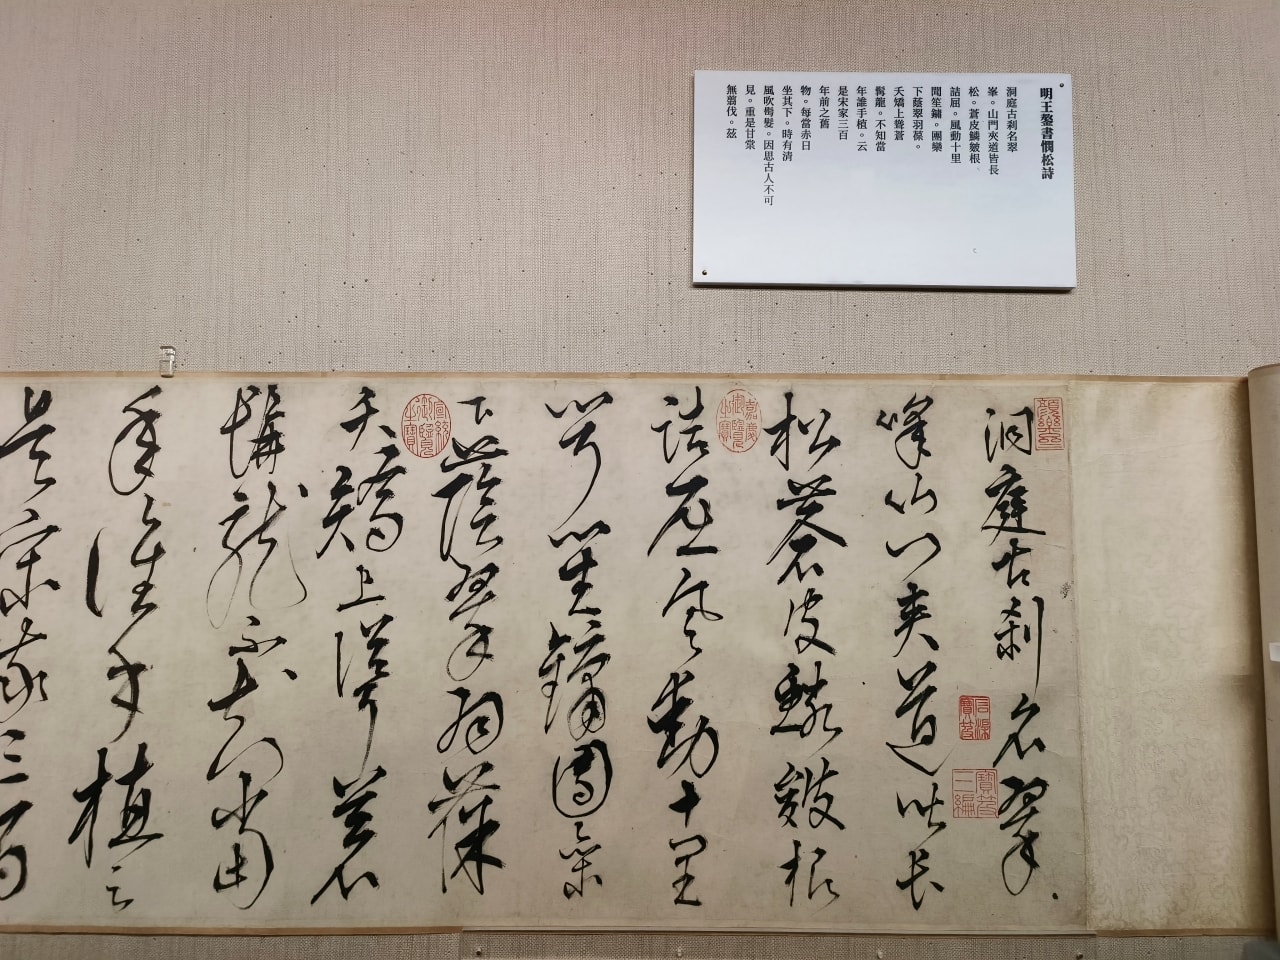 明王鏊書憫松詩
洞庭古剎名翠
峯。山門夾道皆長
松。蒼皮鱗皴根
詰屈。風動十里
聞笙鏞。團欒
下蔭翠羽葆。
夭矯上聳蒼
髯龍。不知當
年誰手植。云
是宋家三百
年前之舊
物。每當赤日
坐其下。時有清
風吹鬢髮。因思古人不可
見。重是甘棠
無翦伐。茲
洞庭古剎名翠
峯山門夾道皆長
松蒼皮鱗皴根
詰屈風動十里
聞笙鏞團欒
下蔭翠羽葆
夭矯上聳蒼
髯龍不知當
年誰手植云
是宋家三百
嘉慶御覽之寶
宣統御覽之寶
石渠寶笈
寶笈三編